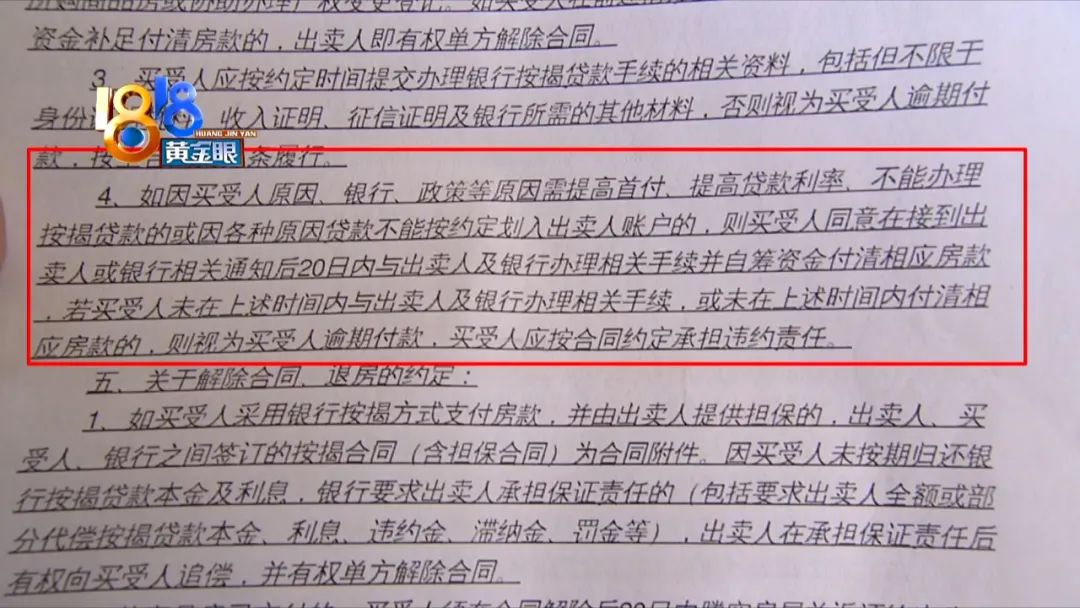 资金补足付清房款的，出卖人即有权单方解除合同。
3、买受人应按约定时间提交办理银行按揭贷款手续的相关资料，包括但不限于
身份 收入证明、征信证明及银行所需的其他材料，否则视为买受人逾期付
款，按 条履行。
1818
HUANG JIN YAN
黄金眼
4、如因买受人原因、银行、政策等原因需提高首付、提高贷款利率、不能办理
按揭贷款的或因各种原因贷款不能按约定划入出卖人账户的，则买受人同意在接到出
卖人或银行相关通知后20日内与出卖人及银行办理相关手续并自筹资金付清相应房款
，若买受人未在上述时间内与出卖人及银行办理相关手续，或未在上述时间内付清相
应房款的，则视为买受人逾期付款，买受人应按合同约定承担违约责任。
五、关于解除合同、退房的约定：
1、如买受人采用银行按揭方式支付房款，并由出卖人提供担保的，出卖人、买
受人、银行之间签订的按揭合同（含担保合同）为合同附件。因买受人未按期归还银
行按揭贷款本金及利息，银行要求出卖人承担保证责任的（包括要求出卖人全额或部
分代偿按揭贷款本金、利息、违约金、滞纳金、罚金等），出卖人在承担保证责任后
有权向买受人追偿，并有权单方解除合同。